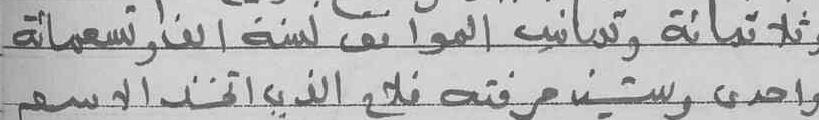 وثلاثمائة وثمانين الموافق لسنة الف وتسعمائة
واحدى وستين مرفته فلاح الذي اتخذ الاسم